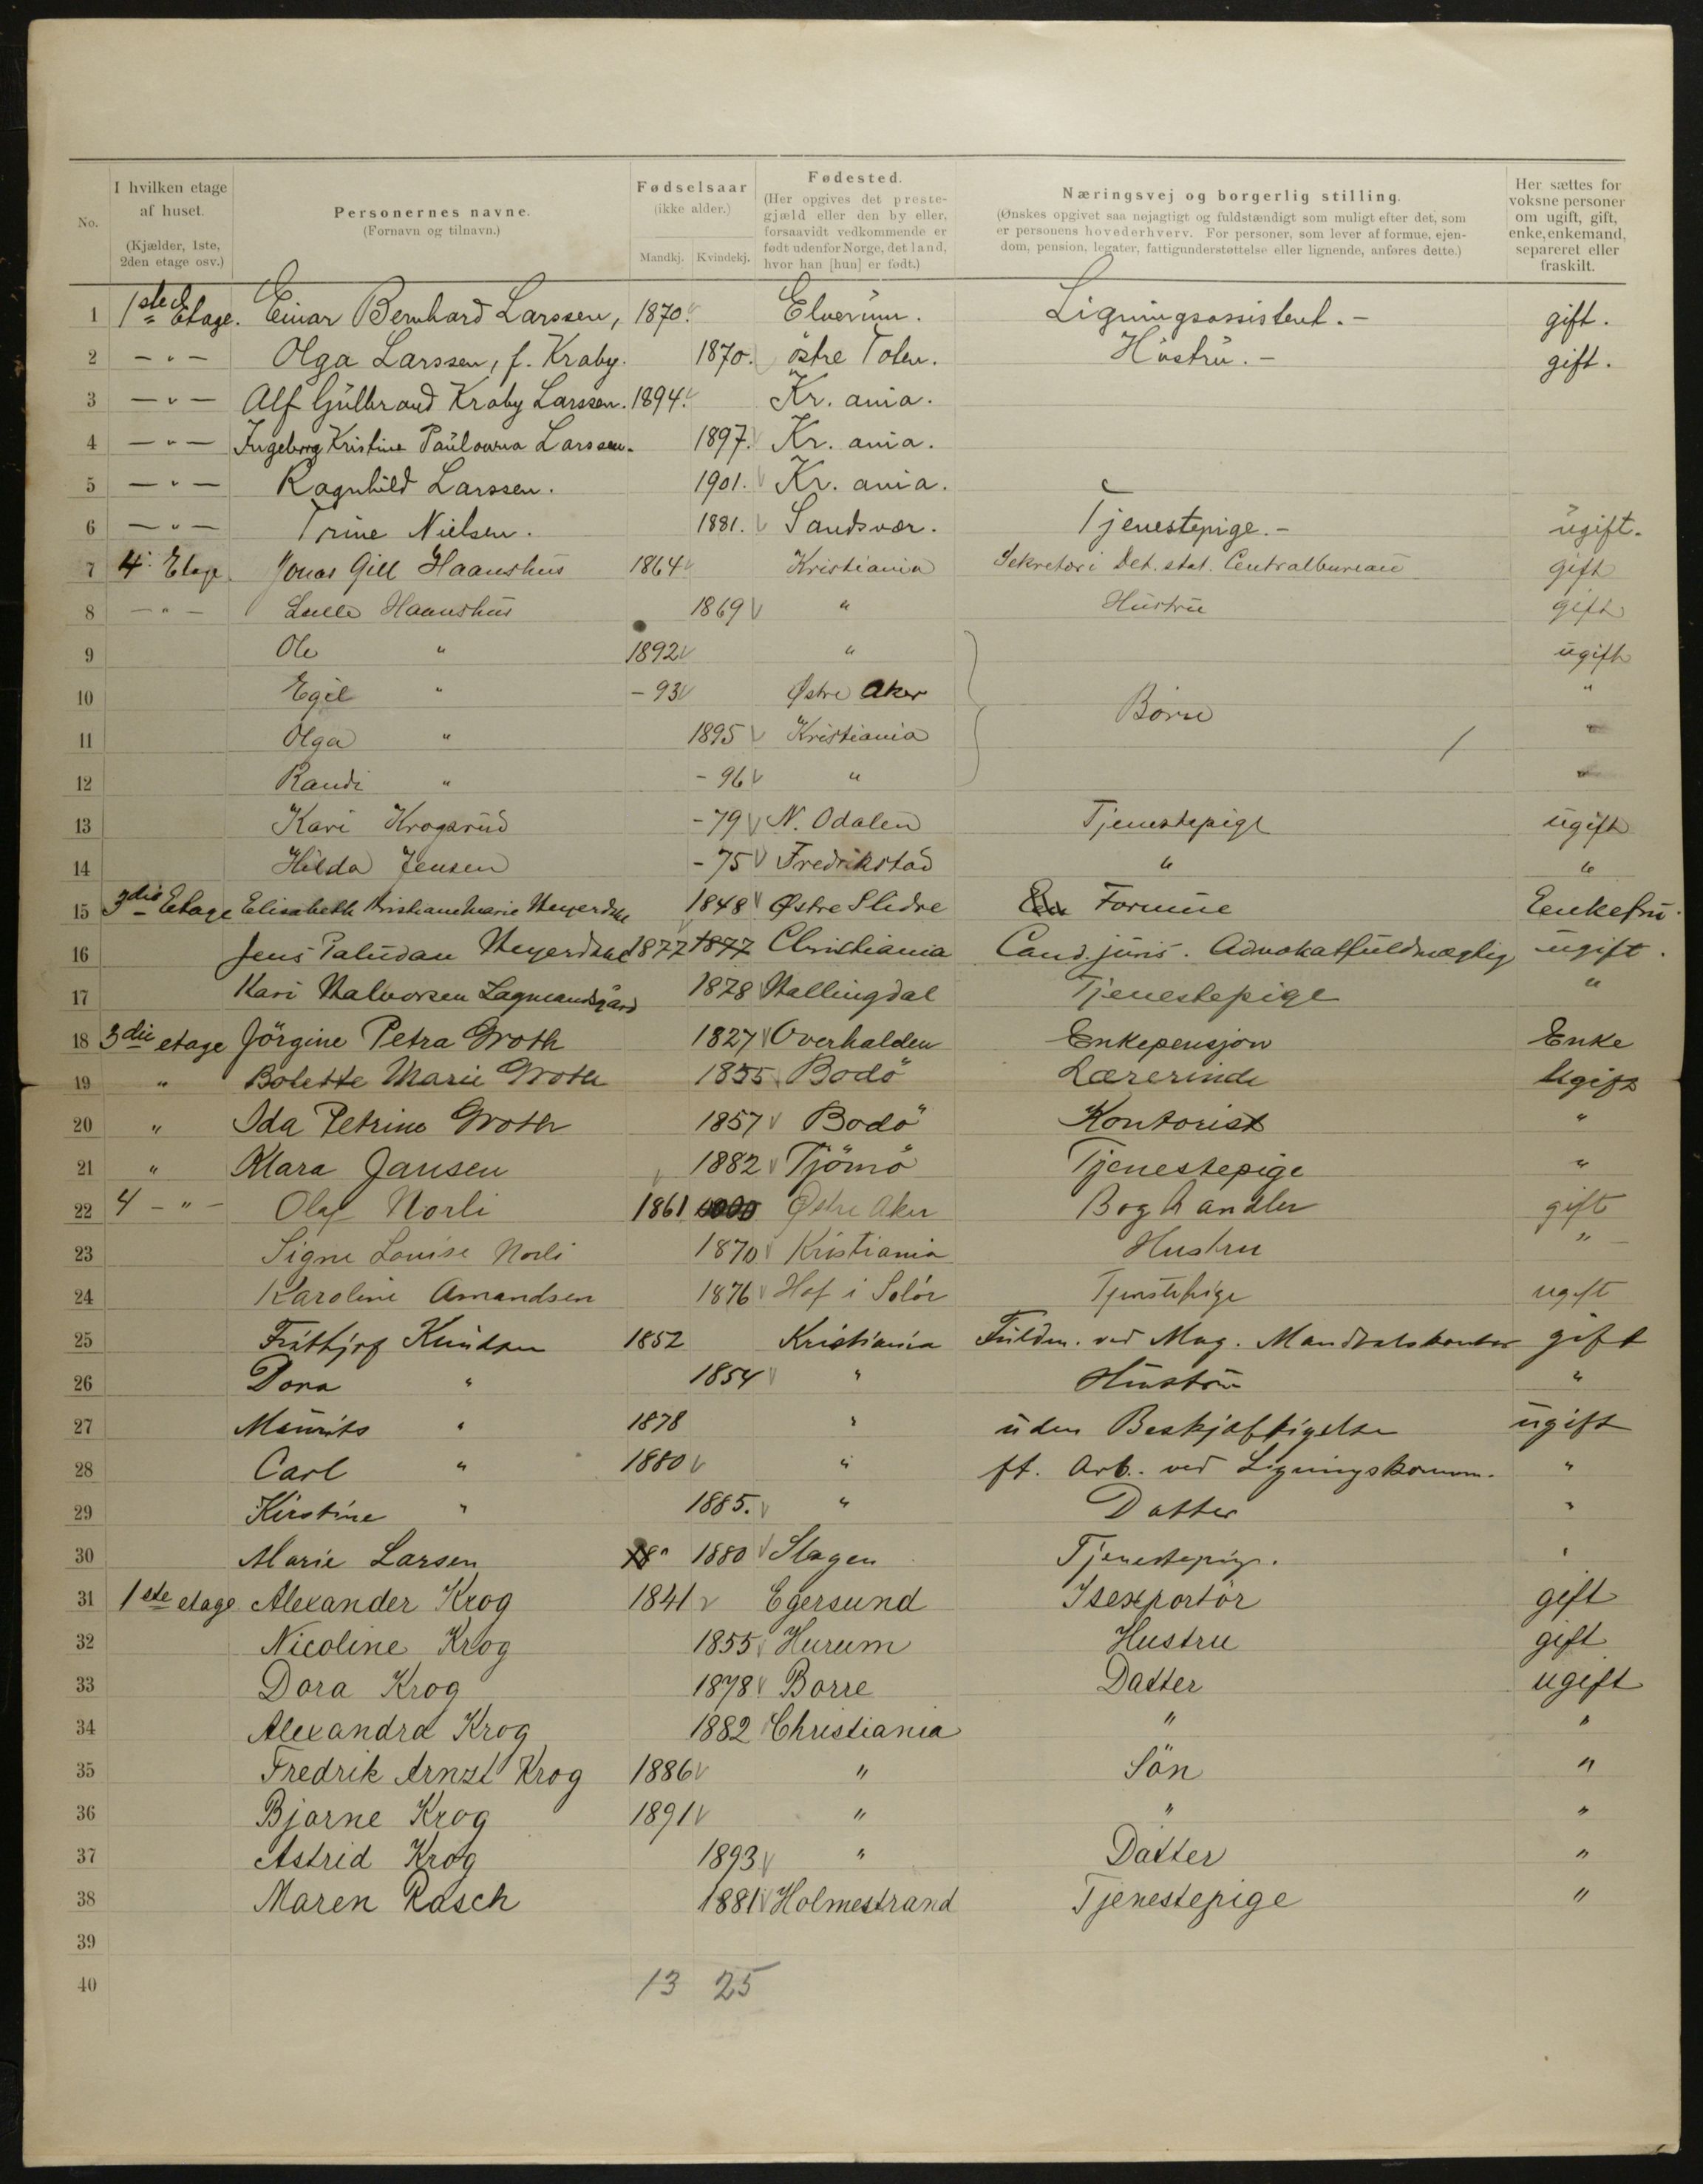 No.
I hvilken etage af huset.
(Kjælder, 1ste, 2den etage osv.)
Personernes navne.
(Fornavn og tilnavn.)
Fødselsaar
(ikke alder.)
Mandkj. Kvindekj.
Fødested.
(Her opgives det prestegjæld eller den by eller, forsaavidt vedkommende er født udenfor Norge, det land, hvor han [hun] er født.)
Næringsvej og borgerlig stilling.
(Ønskes opgivet saa nøjagtigt og fuldstændigt som muligt efter det, som er personens hovederhverv. For personer, som lever af formue, ejendom, pension, legater, fattigunderstøttelse eller lignende, anføres dette.)
Her sættes for voksne personer om ugift, gift, enke, enkemand, separeret eller fraskilt.
1 1ste Etage. Einar Bernhard Larssen, 1870. Elverum. Ligningsassistent.- gift.
2 - " - Olga Larssen, f. Kraby. 1870. östre Toten. Hustru.- gift.
3 - " - Alf Gulbrand Kraby Larssen. 1894. Kr. ania.
4 - " - Ingeborg Kristine Paulowna Larssen. 1897. Kr. ania.
5 - " - Ragnhild Larssen. 1901. Kr. ania.
6 - " - Trine Nielsen. 1881. Sandsvær. Tjenestepige.- ugift.
7 4. Etage Jonas Gill Haanshus 1864 Kristiania Sekretær i Det. stat. Centralbureau gift
8 - " - Lulle Haanshus 1869 " Hustru gift
9 Ole " 1892 " ugift
10 Egil " - 93 Østre Aker Børn "
11 Olga " 1895 Kristiania "
12 Randi " - 96 "
13 Kari Krogsrud - 79 N. Odalen Tjenestepige ugift
14 Hilda Jensen - 75 Fredrikstad " "
15 3die Etage Elisabeth Kristiane Marie Heyerdahl 1848 Østre Slidre Formue Eenkefru.
16 Jens Paludan Heyerdahl 1877 1877 Christiania Cand. juris. Advokatfuldmægtig ugift.
17 Kari Halvorsen Lagmandsgård 1878 Hallingdal Tjenestepige "
18 3die etage Jörgine Petra Groth 1827 Overhalden Enkepensjon Enke
19 " Bolette Marie Groth 1855 Bodö Lærerinde Ugift
20 " Ida Petrine Groth 1857 Bodö Kontorist "
21 " Klara Jansen 1882 Tjömö Tjenestepige "
22 4 - " - Olaf Norli 1861 Østre Aker Boghandler gift
23 Signe Louise Norli 1870 Kristiania Hustru " -
24 Karoline Amandsen 1876 Hof i Solør Tjenstepige ugift
25 Frithjof Knudsen 1852 Kristiania Fuldm. ved Mag. Mandtalskontor gift
26 Dora " 1854 " Hustru "
27 Maurits " 1878 " uden Beskjæftigelse ugift
28 Carl " 1880 " ft. Arb. ved Ligningskomm. "
29 Kirstine " 1885. " Datter "
30 Marie Larsen 1880 Slagen Tjenestepige. "
31 1ste etage Alexander Krog 1841 Egersund Isexportör gift
32 Nicoline Krog 1855 Hurum Hustru gift
33 Dora Krog 1878 Borre Datter ugift
34 Alexandra Krog 1882 Christiania " "
35 Fredrik Arnzt Krog 1886 " Sön "
36 Bjarne Krog 1891 " " "
37 Astrid Krog 1893 " Datter "
38 Maren Rasch 1881 Holmestrand Tjenestepige "
39
40
13 25